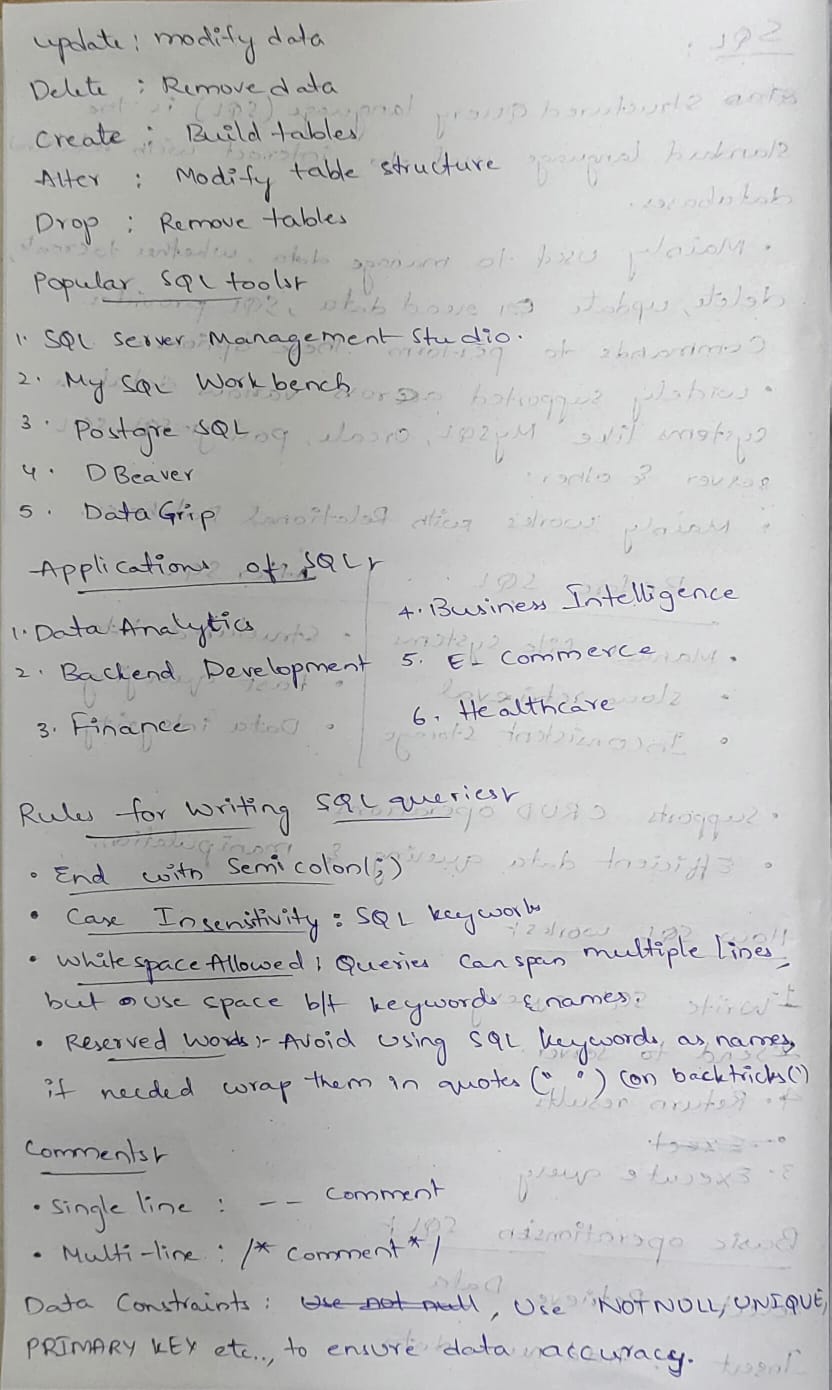 update : modify data
Delete : Remove data
create : Build tables
Alter : Modify table structure
Drop : Remove tables
Popular SQL tools:-
1. SQL Server Management Studio.
2. My SQL Workbench
3. Postgre SQL
4. DBeaver
5. Data Grip
Applications of SQL:-
1. Data Analytics
2. Backend Development
3. Finance
4. Business Intelligence
5. E- Commerce
6. Healthcare
Rules for writing SQL queries:-
• End with Semicolon(;)
• Case Insensitivity : SQL keywords
• white space Allowed : Queries can span multiple lines,
but use space b/t keywords & names.
• Reserved words :- Avoid using SQL keywords as names,
if needed wrap them in quotes (" ") (or) backtricks(`)
Comments:-
• Single line : -- comment
• Multi-line : /* comment */
Data Constraints : Use not null, Use NOTNULL, UNIQUE,
PRIMARY KEY etc.., to ensure data accuracy.